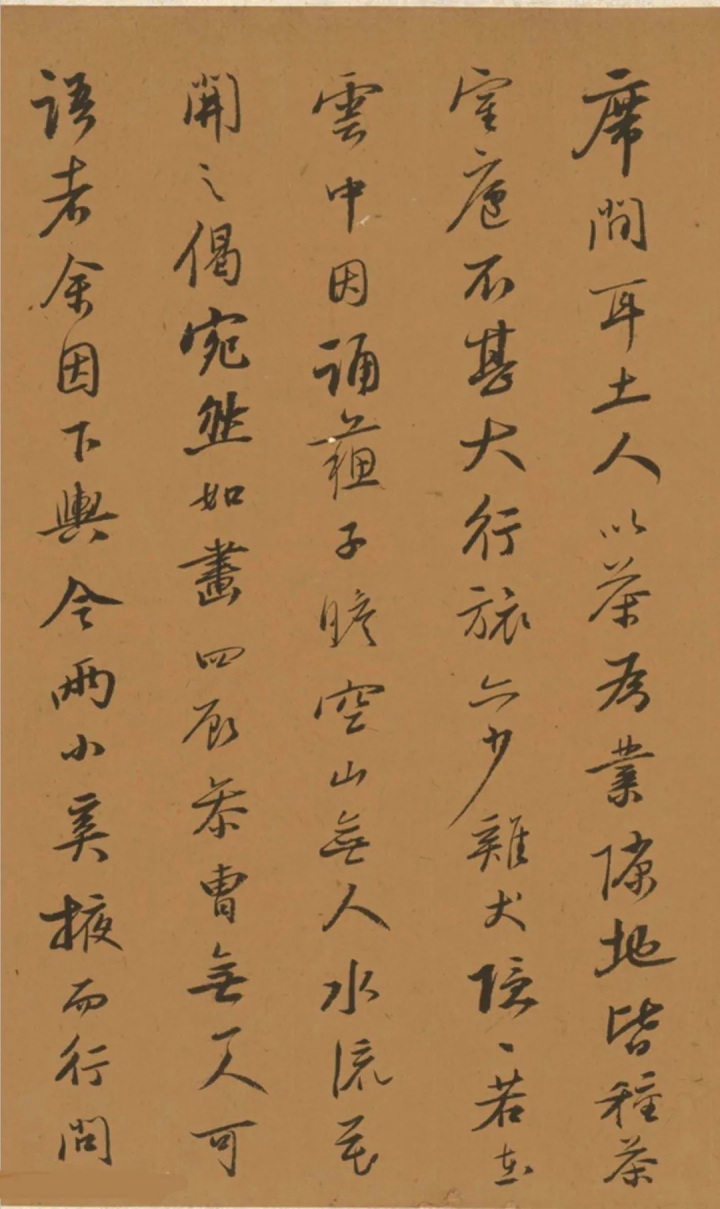 席間耳土人以茶為業隙地皆種茶
室廬不甚大行旅亦少雞犬隱〻若在
雲中因誦蘓子瞻空山無人水流花
開之偈宛然如畫四顧叅曹無一人可
語者余因下輿令兩小奚掖而行問